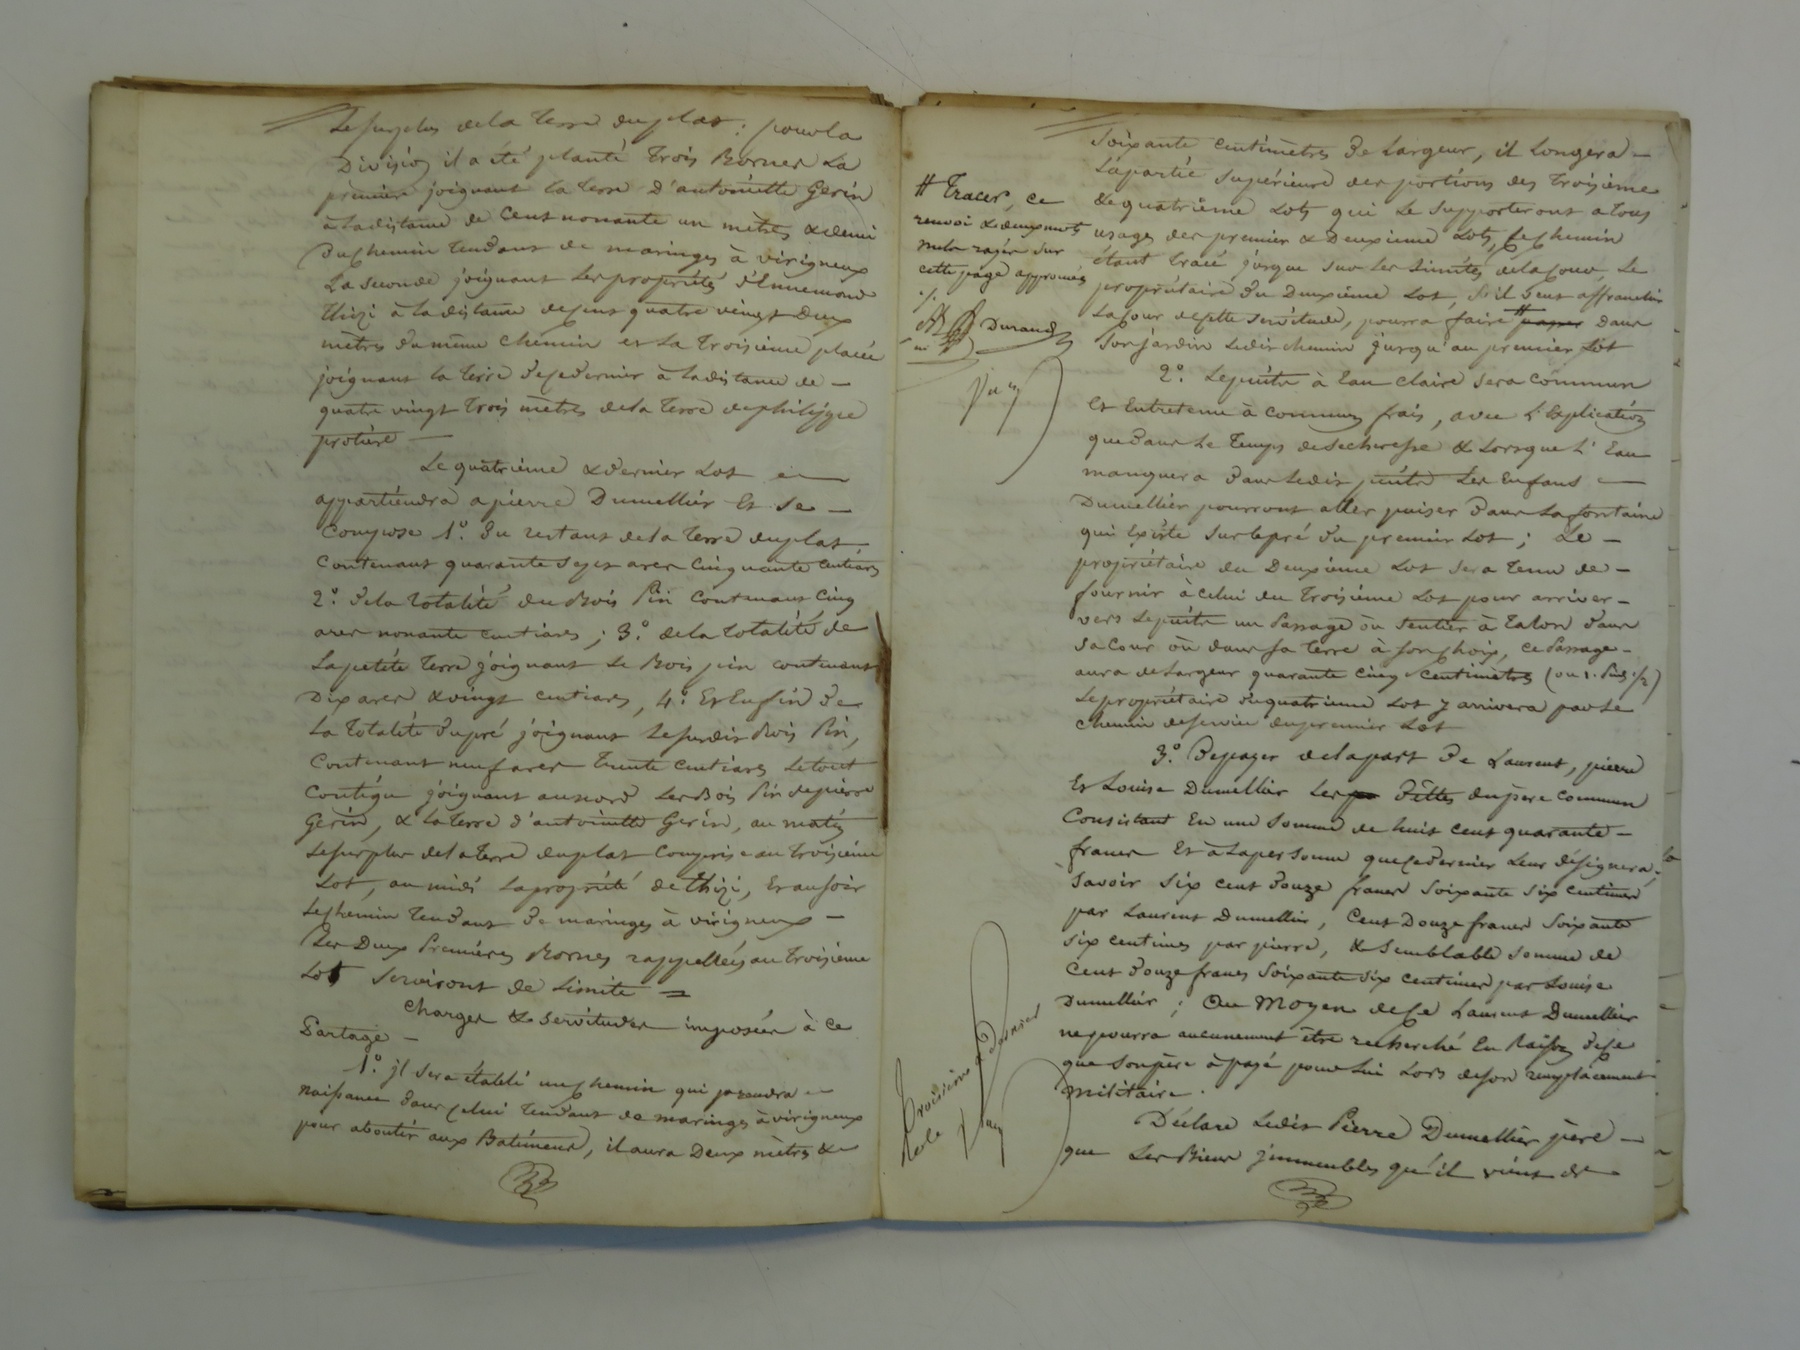 Le surplus de la terre du plat: pour la
Division il a été planté trois Bornes La
première joignant la terre d'antoinette Gerin
à la distance de Cent nonante un mètres & demi
du chemin tendant de maringes à virigneux
La seconde joignant les propriétés d'Ennemond
thizi à la distance de cent quatre vingt deux
mètres du même chemin et La troisième placée
joignant la terre de ce dernier à la distance de
quatre vingt trois mètres de la terre de philippe
protière
Le quatrième & dernier Lot
appartiendra a pierre Dumellier Et se
Compose 1.° du restant de la terre du plat
Contenant quarante sept ares cinquante centiares
2.° de la totalité du Bois Pin contenant cinq
ares nonante centiares; 3.° de la totalité de
La petite terre joignant le Bois pin contenant
Dix ares & vingt centiares, 4.° Et Enfin de
La totalité du pré joignant le susdit Bois Pin,
Contenant neuf ares trente centiares le tout
Contigu joignant au nord les Bois Pin de pierre
Gerin, & la terre d'antoinette Gerin, au matin
le surplus de la terre du plat comprise au troisième
Lot, au midi la propriété de thizi, Et au soir
le chemin tendant de maringes à virigneux
Les Deux Premières Bornes rappellées au troisième
Lot serviront de Limite =
Charges & servitudes imposées à ce
Partage
1.° jl sera établi un chemin qui prendra
naissance dans celui tendant de maringes à virigneux
pour aboutir aux Batimens, il aura Deux mètres &
soixante centimètres de Largeur, il Longera
La partie supérieure des portions des troisième
& quatrième Lots qui le supporteront a tous
usages des premier & Deuxième Lots, le chemin
étant tracé jusque sur les Limites de la Cour, Le
propriétaire du Deuxième Lot, s'il veut affranchir
La Cour de cette servitude, pourra faire # dans
son jardin ledit chemin jusqu'au premier Lot
# tracer, ce
renvoi & deux mots
nuls rayés sur
cette page approuvés
Durand
2.° Le puits à Eau claire sera commun
Et Entretenu à communs frais, avec l'Explication
que dans le temps de secheresse & Lorsque l'Eau
manquera dans ledit puits Les Enfans
Dumellier pourront aller puiser dans La fontaine
qui Existe sur le pré du premier Lot; Le
propriétaire du Deuxième Lot sera tenu de
fournir à celui du troisième Lot pour arriver
vers le puits un Passage ou sentier à talon dans
sa Cour où dans sa terre à son choix, ce Passage
aura de Largeur quarante cinq centimètres (ou 1. Pied 1/2)
Le propriétaire du quatrième Lot y arrivera par le
chemin desservice du premier Lot
3.° De payer de la part de Laurent, pierre
Et Louise Dumellier Les Dettes du père commun
Consistant En une somme de huit cent quarante
francs Et à La personne que ce dernier Leur désignera,
savoir six cent douze francs soixante six centimes
par Laurent Dumellier, Cent Douze francs soixante
six centimes par pierre, & semblable somme de
Cent douze francs soixante six centimes par Louise
Dumellier; Au Moyen de Ce Laurent Dumellier
ne pourra aucunement être recherché En Raison de Ce
que son père à payé pour lui Lors de son remplacement
militaire.
Déclare ledit Pierre Dumellier père
que Les Biens jmmeubles qu'il vient de
troisième & dernier
Rôle